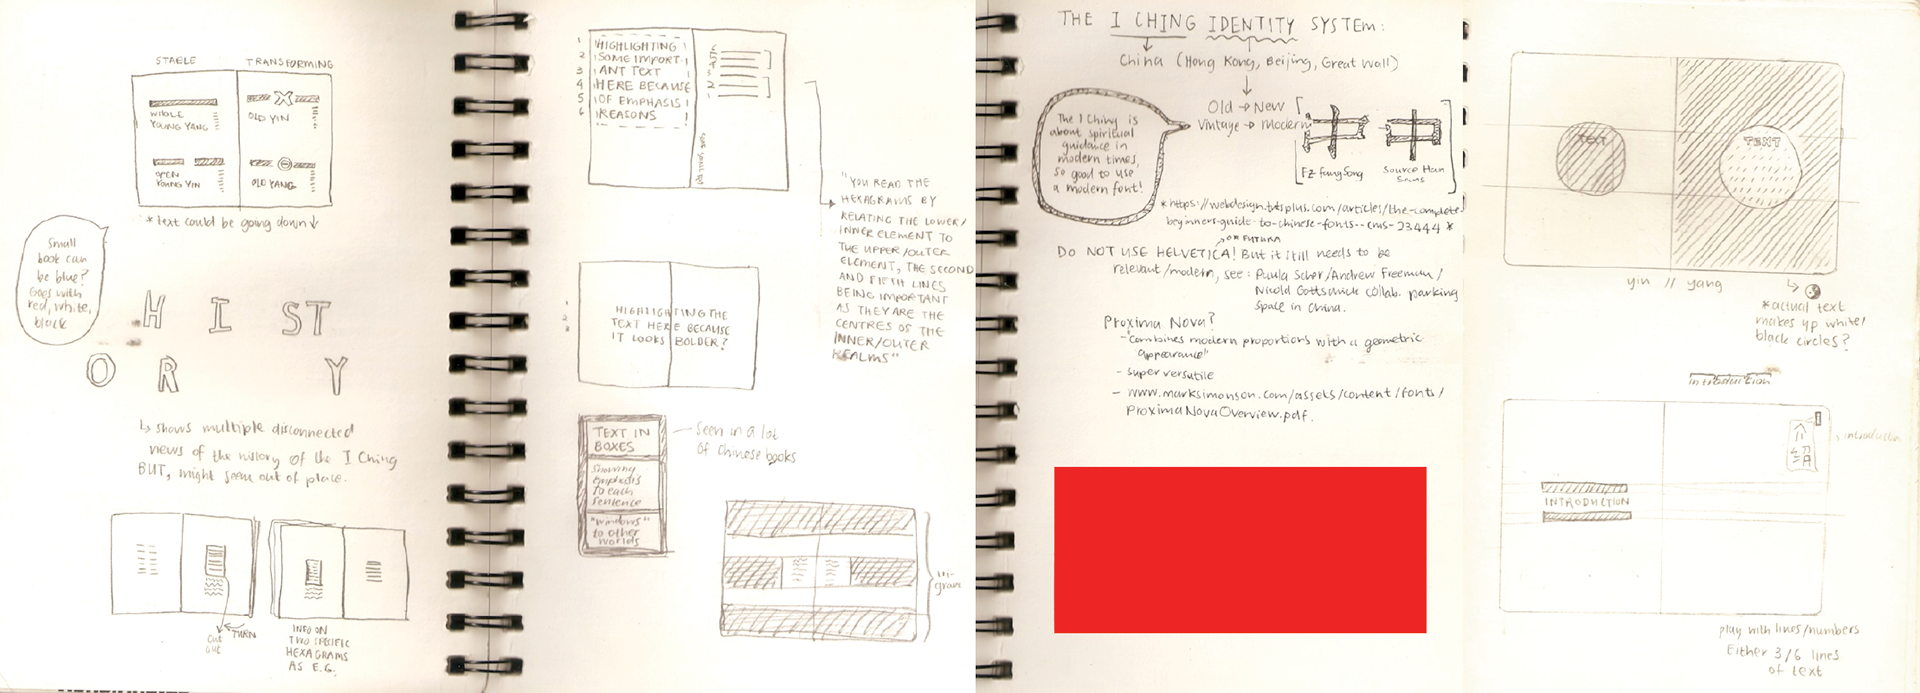 STABLE
TRANSFORMING
WHOLE
YOUNG YANG
OLD YIN
OPEN
YOUNG YIN
OLD YANG
* text could be going down ↓
Small
book can
be blue?
Goes with
red, white,
black
H I ST
O R Y
↳ shows multiple disconnected
views of the history of the I Ching
BUT, might seem out of place.
cut
out
TURN
INFO ON
TWO SPECIFIC
HEXAGRAMS
AS E.G.
1 HIGHLIGHTING
2 SOME IMPORT-
3 ANT TEXT
4 HERE BECAUSE
5 OF EMPHASIS
6 REASONS
"YOU READ THE
HEXAGRAMS BY
RELATING THE LOWER/
INNER ELEMENT TO
THE UPPER/OUTER
ELEMENT, THE SECOND
AND FIFTH LINES
BEING IMPORTANT
AS THEY ARE THE
CENTRES OF THE
INNER/OUTER
REALMS"
1
2
3
HIGHLIGHTING THE
TEXT HERE BECAUSE
IT LOOKS BOLDER?
TEXT IN
BOXES
Showing
emphasis
to each
sentence
"windows"
to other
worlds
— Seen in a lot
of chinese books
THE I CHING IDENTITY SYSTEM:
China (Hong Kong, Beijing, Great Wall)
Old → New
Vintage → Modern
The I Ching is
about spiritual
guidance in
modern times,
so good to use
a modern font!
FZ FangSong
Source Han
Sans
* https://webdesign.tutsplus.com/articles/the-complete-
beginners-guide-to-chinese-fonts--cms-23444 *
OR FUTURA
DO NOT USE HELVETICA! But it still needs to be
relevant/modern, see: Paula Scher/Andrew Freeman/
Nicold Gottschick collab. parking
space in China.
Proxima Nova?
- "Combines modern proportions with a geometric
appearance"
- super versatile
- www.marksimonson.com/assets/content/fonts/
ProximaNovaOverview.pdf.
TEXT
TEXT
yin // yang
*actual text
makes up white/
black circles?
introduction
introduction
INTRODUCTION
play with lines/numbers
Either 3/6 lines
of text